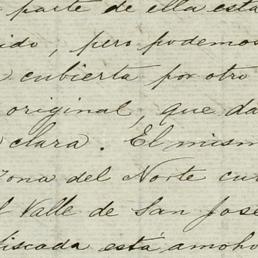 parte de ella esta
ido, pero podemos
cubierta por otro
original, que da
clara. El mism
Zona del Norte cu
l Valle de San Jose
fiscada está amoho